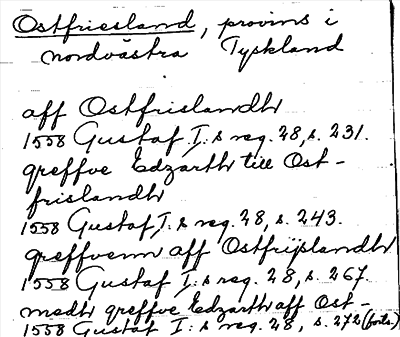 Ostfriesland, provins i
nordvästra Tyskland
aff Ostfrislandh
1558 Gustaf I:s reg. 28, s. 231.
greffve Edzarth till Ost-
frislandh
1558 Gustaf I:s reg. 28, s. 243.
greffvenn aff Ostfrijslandh
1558 Gustaf I:s reg. 28, s. 267.
medh greffve Edzarth aff Ost-
1558 Gustaf I:s reg. 28, s. 272 (forts.)